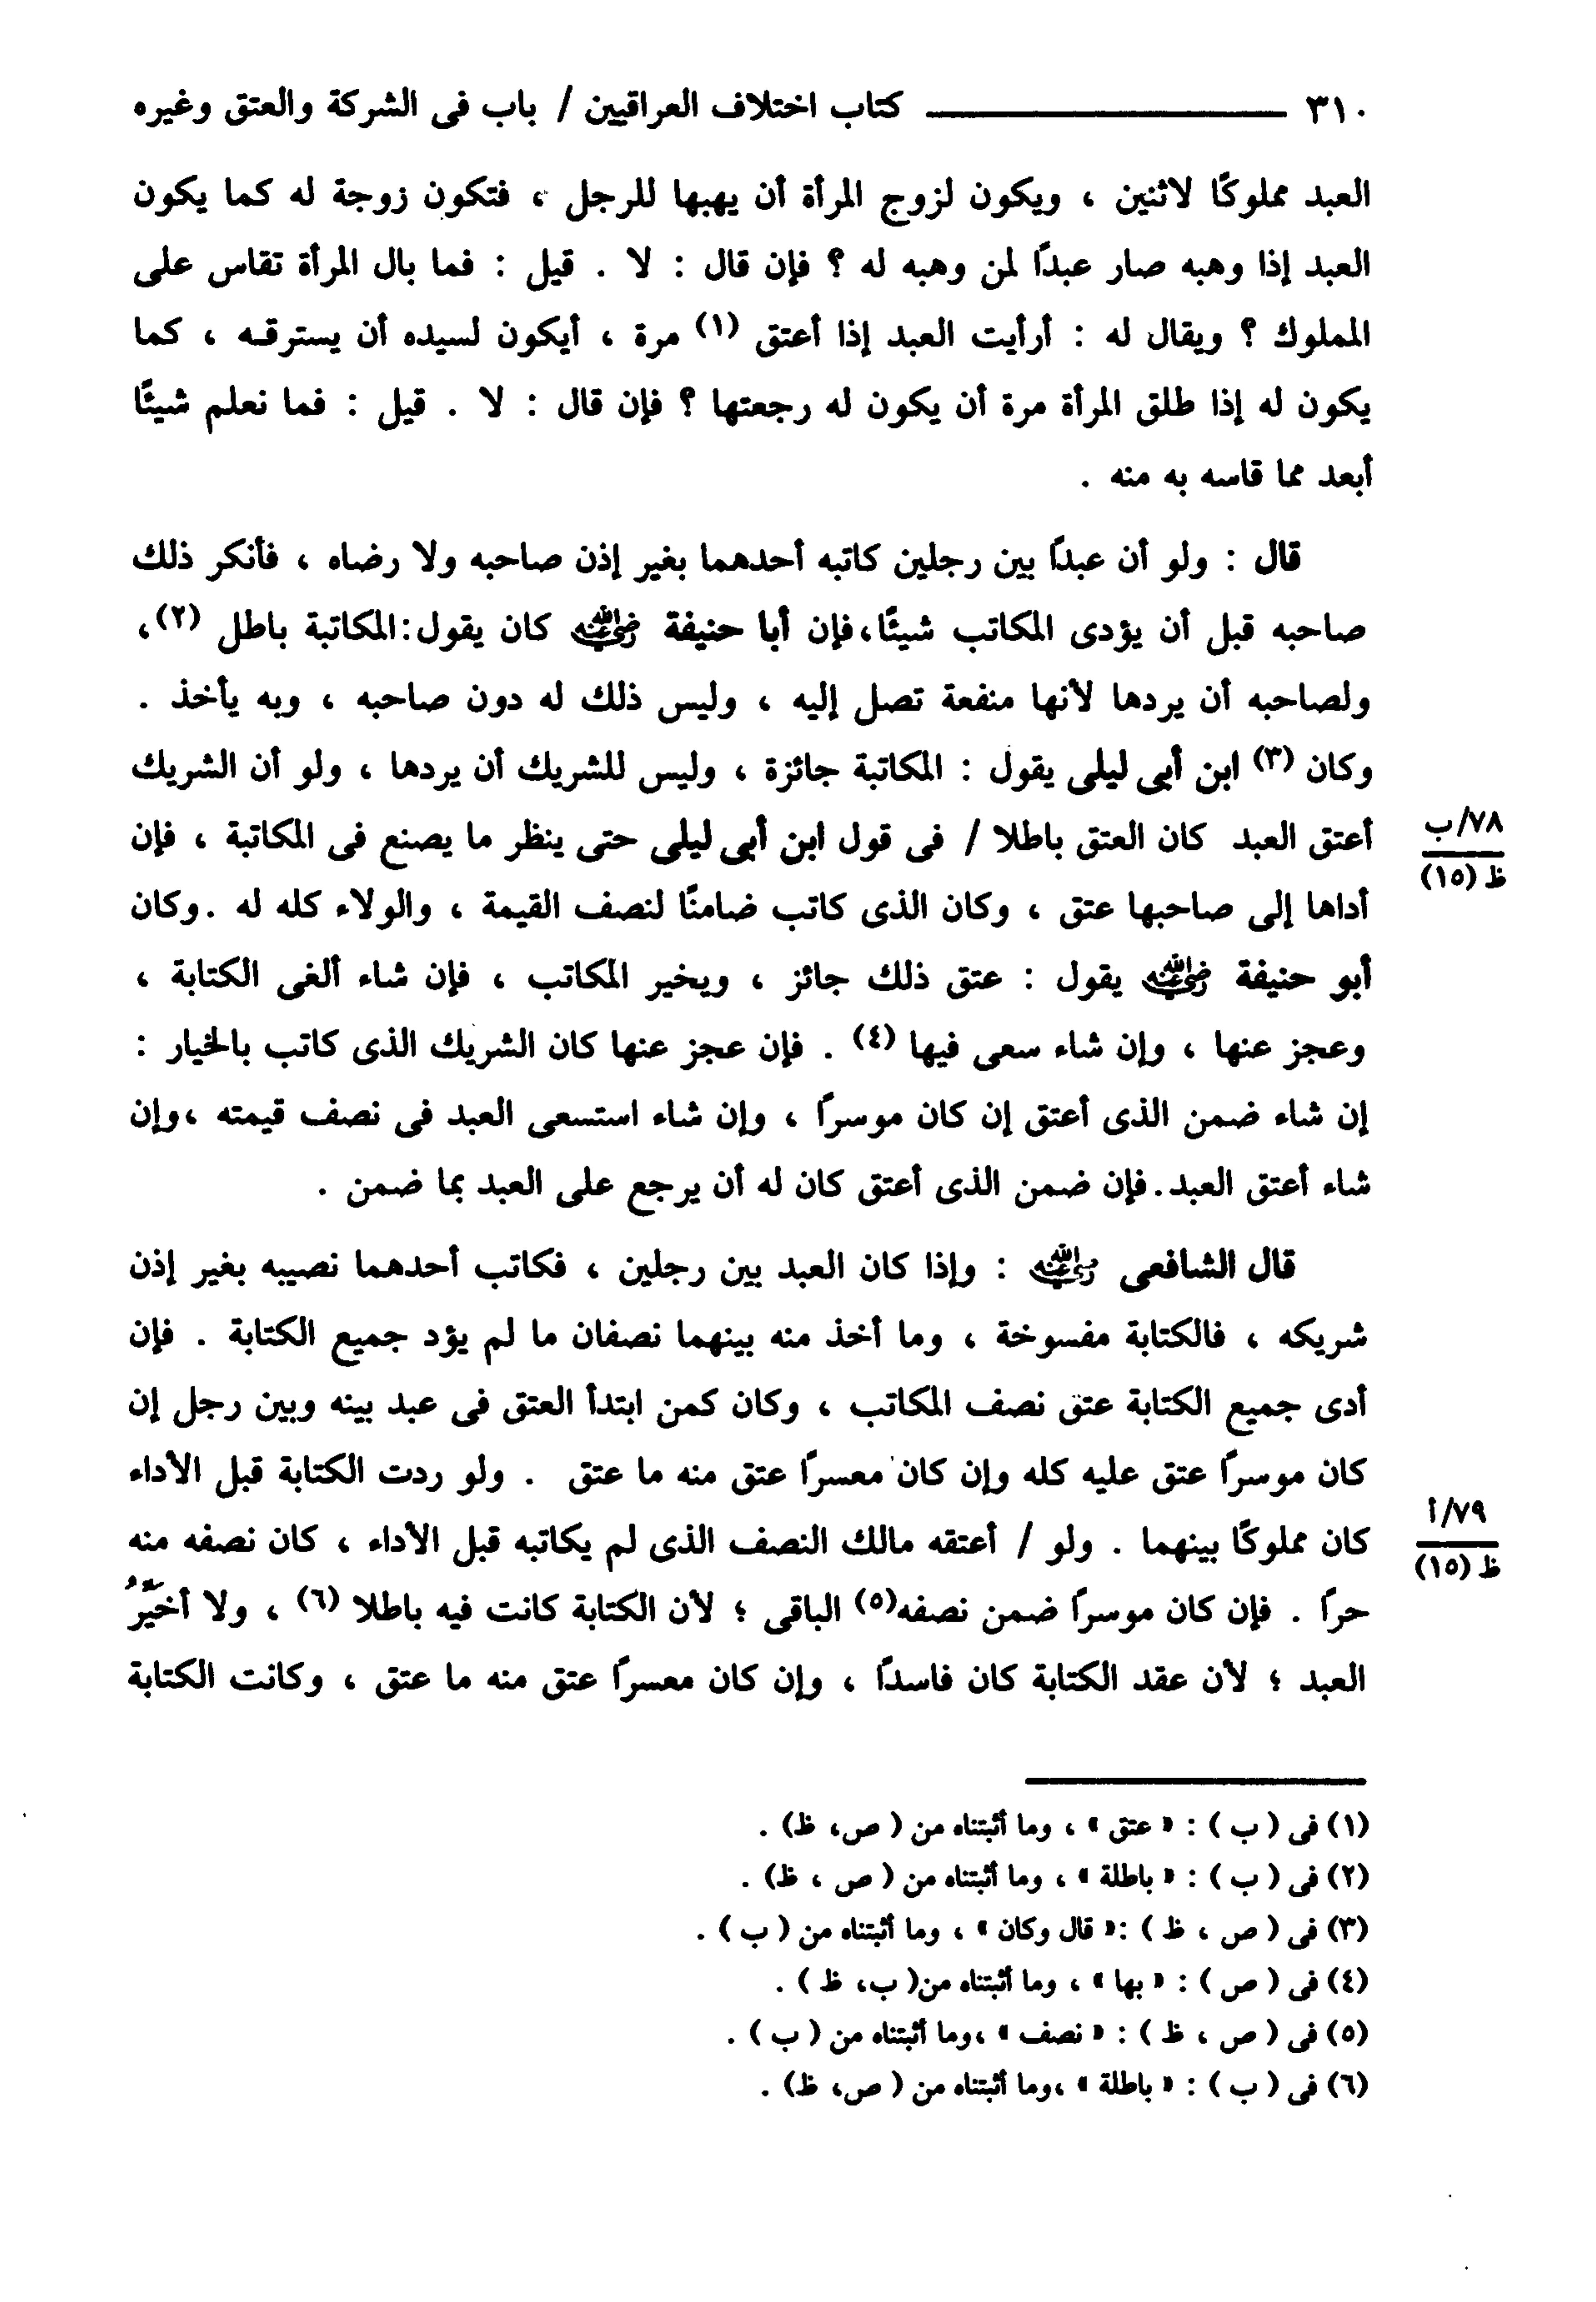 ٣١٠ ــــــــــــــــ كتاب اختلاف العراقيين / باب فى الشركة والعتق وغيره
العبد مملوكًا لاثنين ، ويكون لزوج المرأة أن يهبها للرجل ، فتكون زوجة له كما يكون
العبد إذا وهبه صار عبدًا لمن وهبه له ؟ فإن قال : لا . قيل : فما بال المرأة تقاس على
المملوك ؟ ويقال له : أرأيت العبد إذا أعتق (١) مرة ، أيكون لسيده أن يسترقه ، كما
يكون له إذا طلق المرأة مرة أن يكون له رجعتها ؟ فإن قال : لا . قيل : فما نعلم شيئًا
أبعد مما قاسه به منه .
قال : ولو أن عبدًا بين رجلين كاتبه أحدهما بغير إذن صاحبه ولا رضاه ، فأنكر ذلك
صاحبه قبل أن يؤدى المكاتب شيئًا،فإن أبا حنيفة رضي الله عنه كان يقول:المكاتبة باطل (٢)،
ولصاحبه أن يردها لأنها منفعة تصل إليه ، وليس ذلك له دون صاحبه ، وبه يأخذ .
وكان (٣) ابن أبى ليلى يقول : المكاتبة جائزة ، وليس للشريك أن يردها ، ولو أن الشريك
أعتق العبد كان العتق باطلا / فى قول ابن أبى ليلى حتى ينظر ما يصنع فى المكاتبة ، فإن
٧٨/ب
ظ (١٥)
أداها إلى صاحبها عتق ، وكان الذى كاتب ضامنًا لنصف القيمة ، والولاء كله له .وكان
أبو حنيفة رضي الله عنه يقول : عتق ذلك جائز ، ويخير المكاتب ، فإن شاء ألغى الكتابة ،
وعجز عنها ، وإن شاء سعى فيها (٤) . فإن عجز عنها كان الشريك الذى كاتب بالخيار :
إن شاء ضمن الذى أعتق إن كان موسرًا ، وإن شاء استسعى العبد فى نصف قيمته ،وإن
شاء أعتق العبد.فإن ضمن الذى أعتق كان له أن يرجع على العبد بما ضمن .
قال الشافعى رضي الله عنه : وإذا كان العبد بين رجلين ، فكاتب أحدهما نصيبه بغير إذن
شريكه ، فالكتابة مفسوخة ، وما أخذ منه بينهما نصفان ما لم يؤد جميع الكتابة . فإن
أدى جميع الكتابة عتق نصف المكاتب ، وكان كمن ابتدأ العتق فى عبد بينه وبين رجل إن
كان موسرًا عتق عليه كله وإن كان معسرًا عتق منه ما عتق . ولو ردت الكتابة قبل الأداء
كان مملوكًا بينهما . ولو / أعتقه مالك النصف الذى لم يكاتبه قبل الأداء ، كان نصفه منه
٧٩/أ
ظ (١٥)
حرًا . فإن كان موسرًا ضمن نصفه(٥) الباقى ؛ لأن الكتابة كانت فيه باطلا (٦) ، ولا أخيِّرُ
العبد ؛ لأن عقد الكتابة كان فاسدًا ، وإن كان معسرًا عتق منه ما عتق ، وكانت الكتابة
(١) فى ( ب ) : « عتق » ، وما أثبتناه من ( ص، ظ) .
(٢) فى ( ب ) : « باطلة » ، وما أثبتناه من ( ص ، ظ) .
(٣) فى ( ص ، ظ ) :« قال وكان » ، وما أثبتناه من ( ب ) .
(٤) فى ( ص ) : « بها » ، وما أثبتناه من( ب، ظ ) .
(٥) فى ( ص ، ظ ) : « نصف » ،وما أثبتناه من ( ب ) .
(٦) فى ( ب ) : « باطلة » ،وما أثبتناه من ( ص، ظ) .